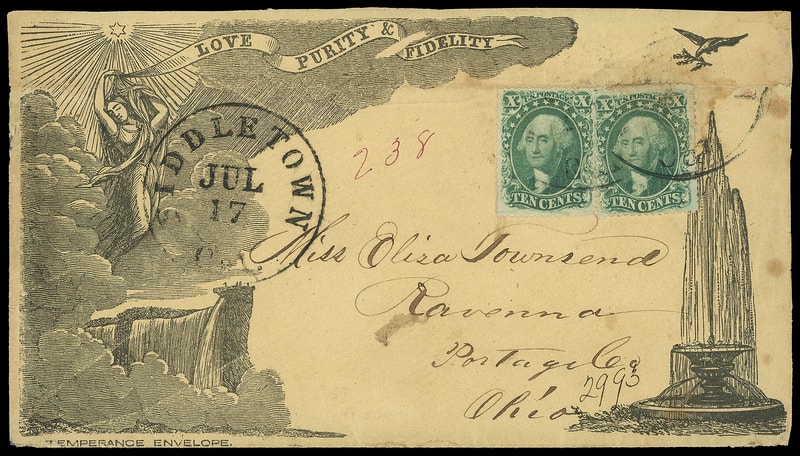 LOVE PURITY & FIDELITY
X U.S. POSTAGE X X U.S. POSTAGE X
TEN CENTS. TEN CENTS.
238
MIDDLETOWN
JUL
17
Miss Eliza Townsend
Ravenna
Portage Co
2993
Ohio
TEMPERANCE ENVELOPE.